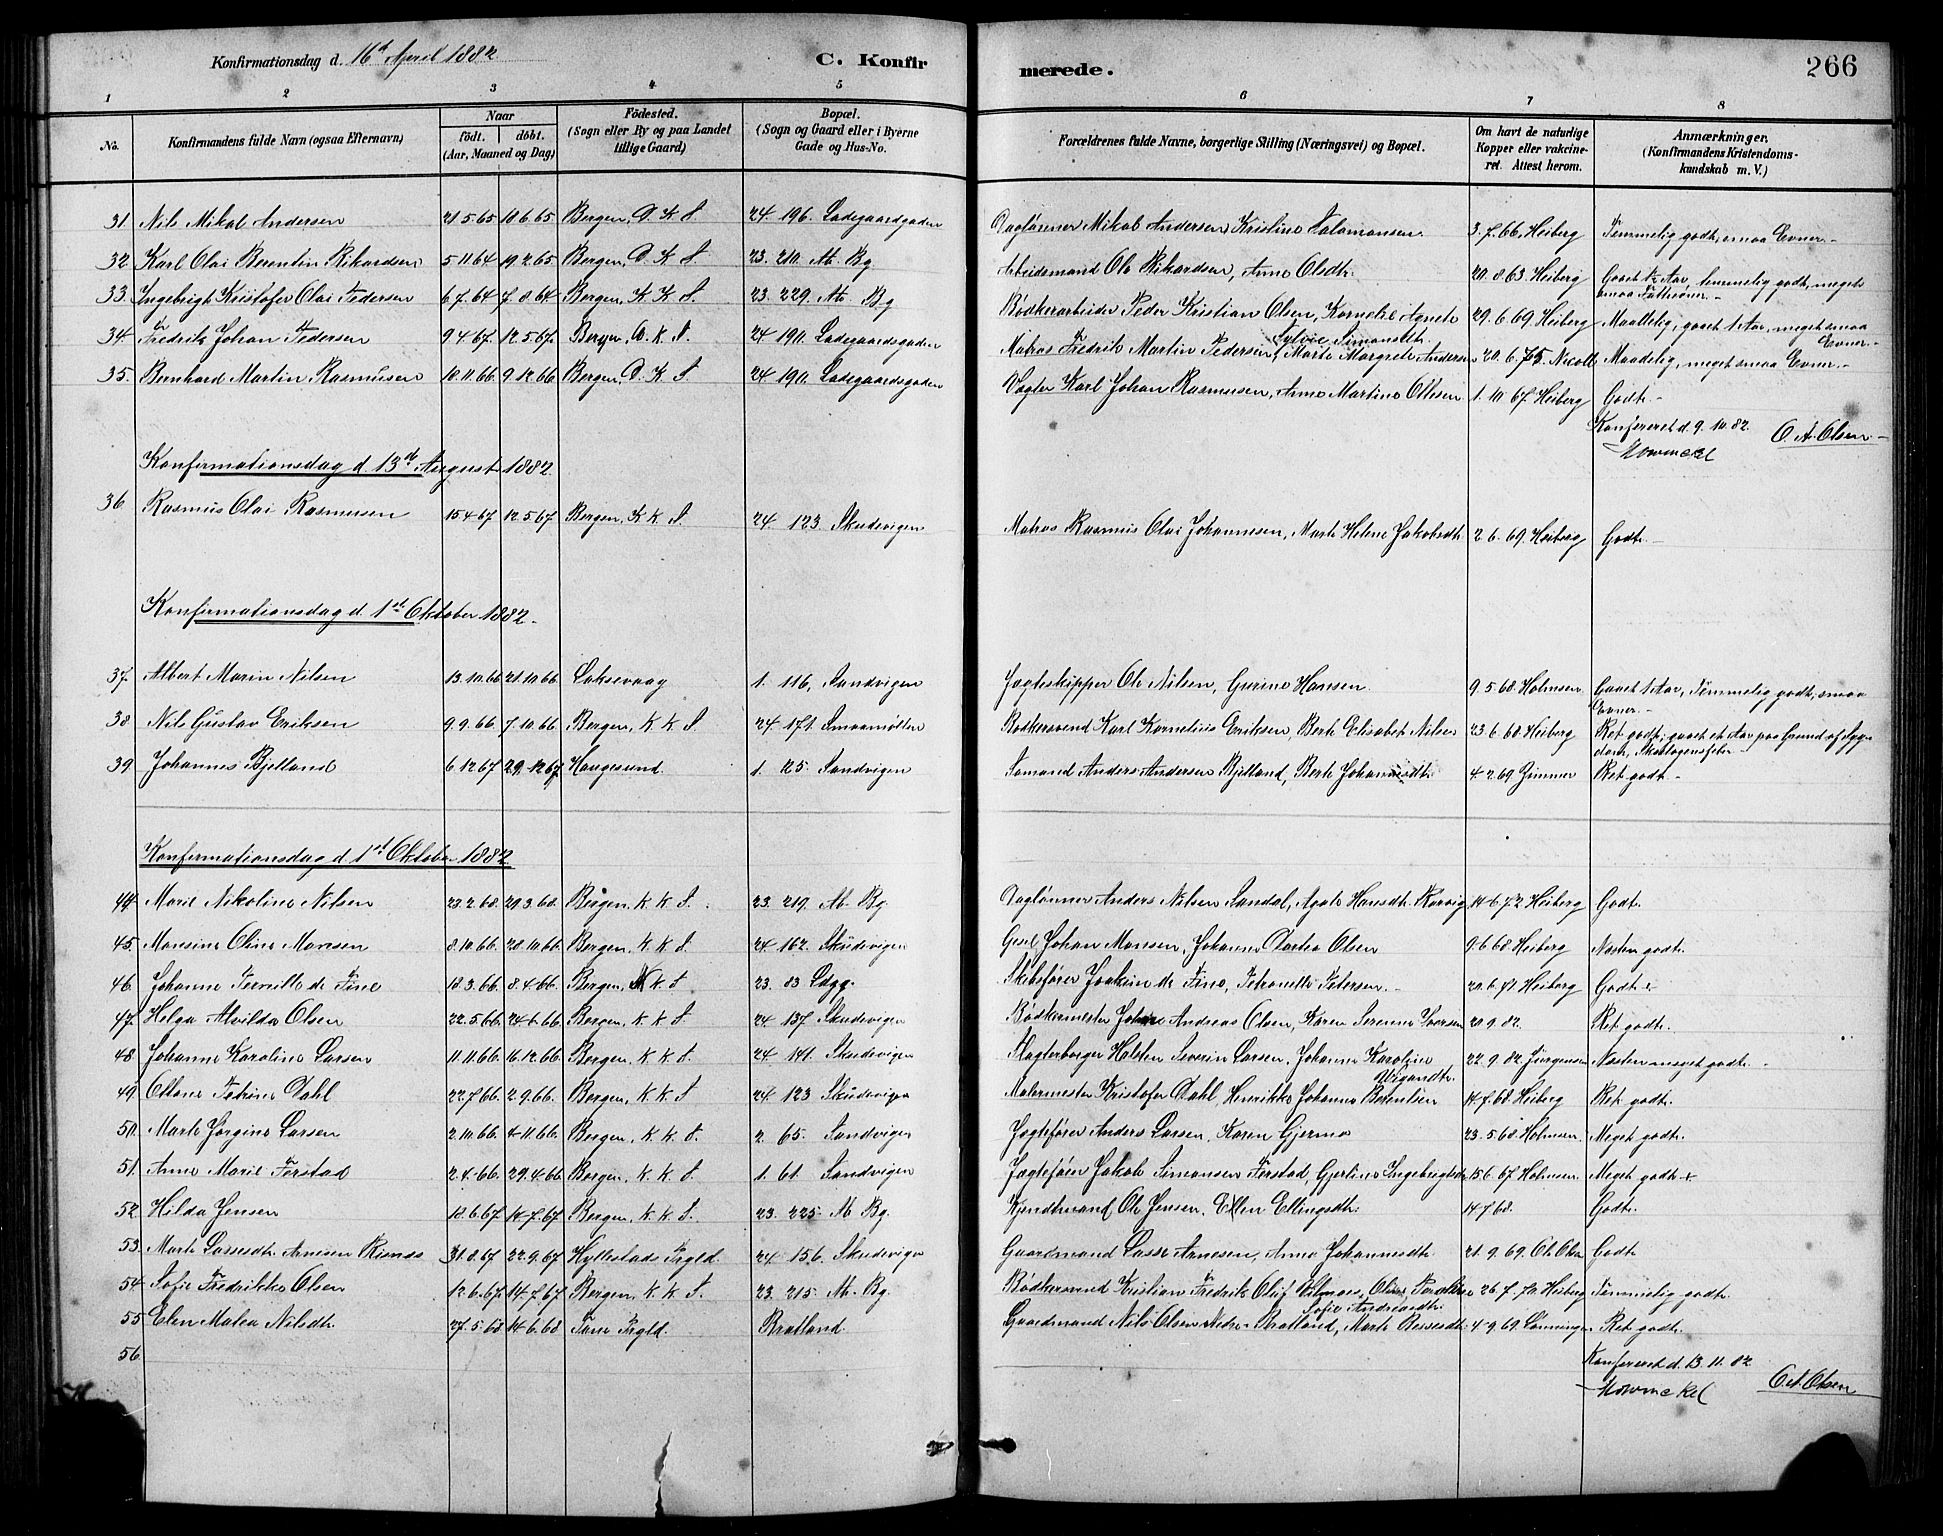 Konfirmationsdag d. 16d April 1882
C. Konfir
merede.
266
1 2 3 4 5 6 7 8
No.
Konfirmandens fulde Navn (ogsaa Efternavn)
Naar
födt. döbt.
(Aar, Maaned og Dag)
Födested.
(Sogn eller By og paa Landet
tillige Gaard)
Bopæl.
(Sogn og Gaard eller i Byerne
Gade og Hus-No.
Forældrenes fulde Navne, borgerlige Stilling (Næringsvei) og Bopæl.
Om havt de naturlige
Kopper eller vakcine-
ret. Attest herom.
Anmærkninger.
(Konfirmandens Kristendoms-
kundskab m. V.)
31. Nils Mikal Andersen 21.5.65 18.6.65 Bergen, D. K. S. 24 196. Ladegaardsgaden Daglønner Mikal Andersen, Kristine Salamonsen. 3.7.66. Heiberg Temmelig godt, smaa Evner.
32. Karl Olai Berentin Rikardsen 5.11.64 19.2.65 Bergen, D. K. S. 23. 210. Ab. Bg. Arbeidsmand Ole Rikardsen, Anne Olsdtr. 20.8.63 Heiberg Gaaet ½ Aar, temmelig godt, meget
smaa
33. Ingebrigt Kristofer Olai Pedersen 6.7.64 7.8.64 Bergen, K. K. S. 23. 229. Ab. Bg Bødkerarbeider Peder Kristian Olsen, Kornelie Agnete
Sylvie Simonsdtr. 29.6.69 Heiberg Maadelig, gaaet 1 Aar, meget smaa
Evner.
34. Fredrik Johan Pedersen 9.4.67. 12.5.67. Bergen, D. K. S. 24 190. Ladegaardsgaden Matros Fredrik Martin Pedersen, Marte Margrete Andersen 20.6.75 Nicoll Maadelig, meget smaa Evner.
35. Bernhard Martin Rasmusen 10.11.66 9.12.66 Bergen, D. K. S. 24 190. Ladegaardsgaden Vagter Karl Johan Rasmusen, Anne Martine Ottesen 1.10.67 Heiberg Godt.
Konfereret d. 9.10.82. O. A. Olsen
Mowinckel
Konfirmationsdag d. 13de August 1882.
36 Rasmus Olai Rasmusen 15.4.67 12.5.67 Bergen, K. K. S. 24 123. Skudevigen Matros Rasmus Olai Johannesen, Marte Helene Jakobsdtr. 2.6.69. Heiberg Godt.
Konfirmationsdag d. 1ste Oktober 1882.
37. Albert Marin Nilsen 13.10.66 21.10.66 Laksevaag 1. 116, Sandvigen Jagteskipper Ole Nilsen, Gurine Hansen. 9.5.68. Holmsen Gaaet 1 Aar, Temmelig godt, smaa
Evner.
38. Nils Gustav Eriksen 9.9.66. 7.10.66. Bergen, K. K. S. 24. 171. Smaamøllen Bødkersvend Karl Kornelius Eriksen, Berte Elisabet Nilsen 23.6.68. Heiberg Ret godt, gaaet et Aar paa Grund af Syg-
dom, Skarlagensfeber
39. Johannes Bjelland 6.12.67 29.12.67 Haugesund. 1. 125. Sandvigen Sømand Anders Andersen Bjelland, Berte Johannesdtr. 4.2.69 Zimmer Ret godt.
Konfirmationsdag d. 1ste Oktober 1882.
44. Marie Nikoline Nilsen 23.2.68. 29.3.68. Bergen, K. K. S. 23. 219. Ab. Bg. Daglønner Anders Nilsen Sandal, Agate Hansdtr. 14.6.72 Heiberg Godt.
45. Monsine Oline Monsen 8.10.66. 28.10.66 Bergen, K. K. S. 24. 162. Skudevigen Gesel Johan Monsen, Johanne Dortea Olsen 9.6.68. Heiberg Næsten godt.
46. Johanne de Fine 18.3.66. 8.4.66. Bergen, N K S 23. 83 Lægg. Skibsfører Joakim de Fine, Petronelle Petersen. 20.6.71. Heiberg Godt
47. Helga Alvilda Olsen 22.5.66 24.6.66 Bergen, K. K. S. 24 137 Skudevigen Bødkermester Johan Andreas Olsen, Karen Serenne Iversen 20.9.82. Ret godt.
48. Johanne Karoline Larsen 11.11.66. 16.12.66 Bergen, K. K. S. 24. 141. Skudevigen Slagterborger Halsten Severin Larsen, Johanne Karoline
Wigandtr. 22.9.82. Jürgensen Næsten meget godt.
49. Oltine Petrine Dahl 22.7.66. 2.9.66. Bergen, K. K. S 24. 123 Skudevigen Malermester Kristofer Dahl, Henrikke Johanne Berentsen 14.7.68. Heiberg Ret godt.
50. Marte Jørgine Larsen 2.10.66. 4.11.66. Bergen, K. K. S. 2. 65. Sandvigen Jagtefører Anders Larsen, Karen Gjerine 23.5.68. Holmsen Meget godt.
51. Anne Marie Førstad 2.4.66. 29.4.66 Bergen, K. K. S. 1. 61. Sandvigen Jagtefører Jakob Simonsen Førstad, Gjertine Ingebrigtsdtr. 15.6.67. Holmsen. Meget godt.
52. Hilda Jensen 18.6.67 14.7.67 Bergen. K. K. S. 23. 225. Ab Bg. Kjendtmand Ole Jensen, Ellen Ellingsdtr. 14.7.68. Godt.
53. Marte Lassesdtr. Arnesen Risnes 31.8.67 22.9.67 Hyllestads Prgld. 24. 156. Skudevigen Gaardmand Lasse Arnesen, Anne Johannesdtr. 21.9.69. Ol. Olsen Godt
54. Sofie Fredrikke Olsen 12.6.67. 14.7.67 Bergen, K. K. S. 23. 215. Ab. Bg. Bødkersvend Kristian Fredrik Oluf
Sofie Andreasdtr. 26.7.70. Heiberg Temmelig godt.
55 Elen Malea Nilsdtr. 27.5.68 14.6.68 Fane Prgld. Bratland. Gaardmand Nils Olsen Nedre-Bratland, Marte 4.9.69 Lønningen Ret godt.
56.
Konfereret d. 13.11.82
Mowinckel O. A. Olsen